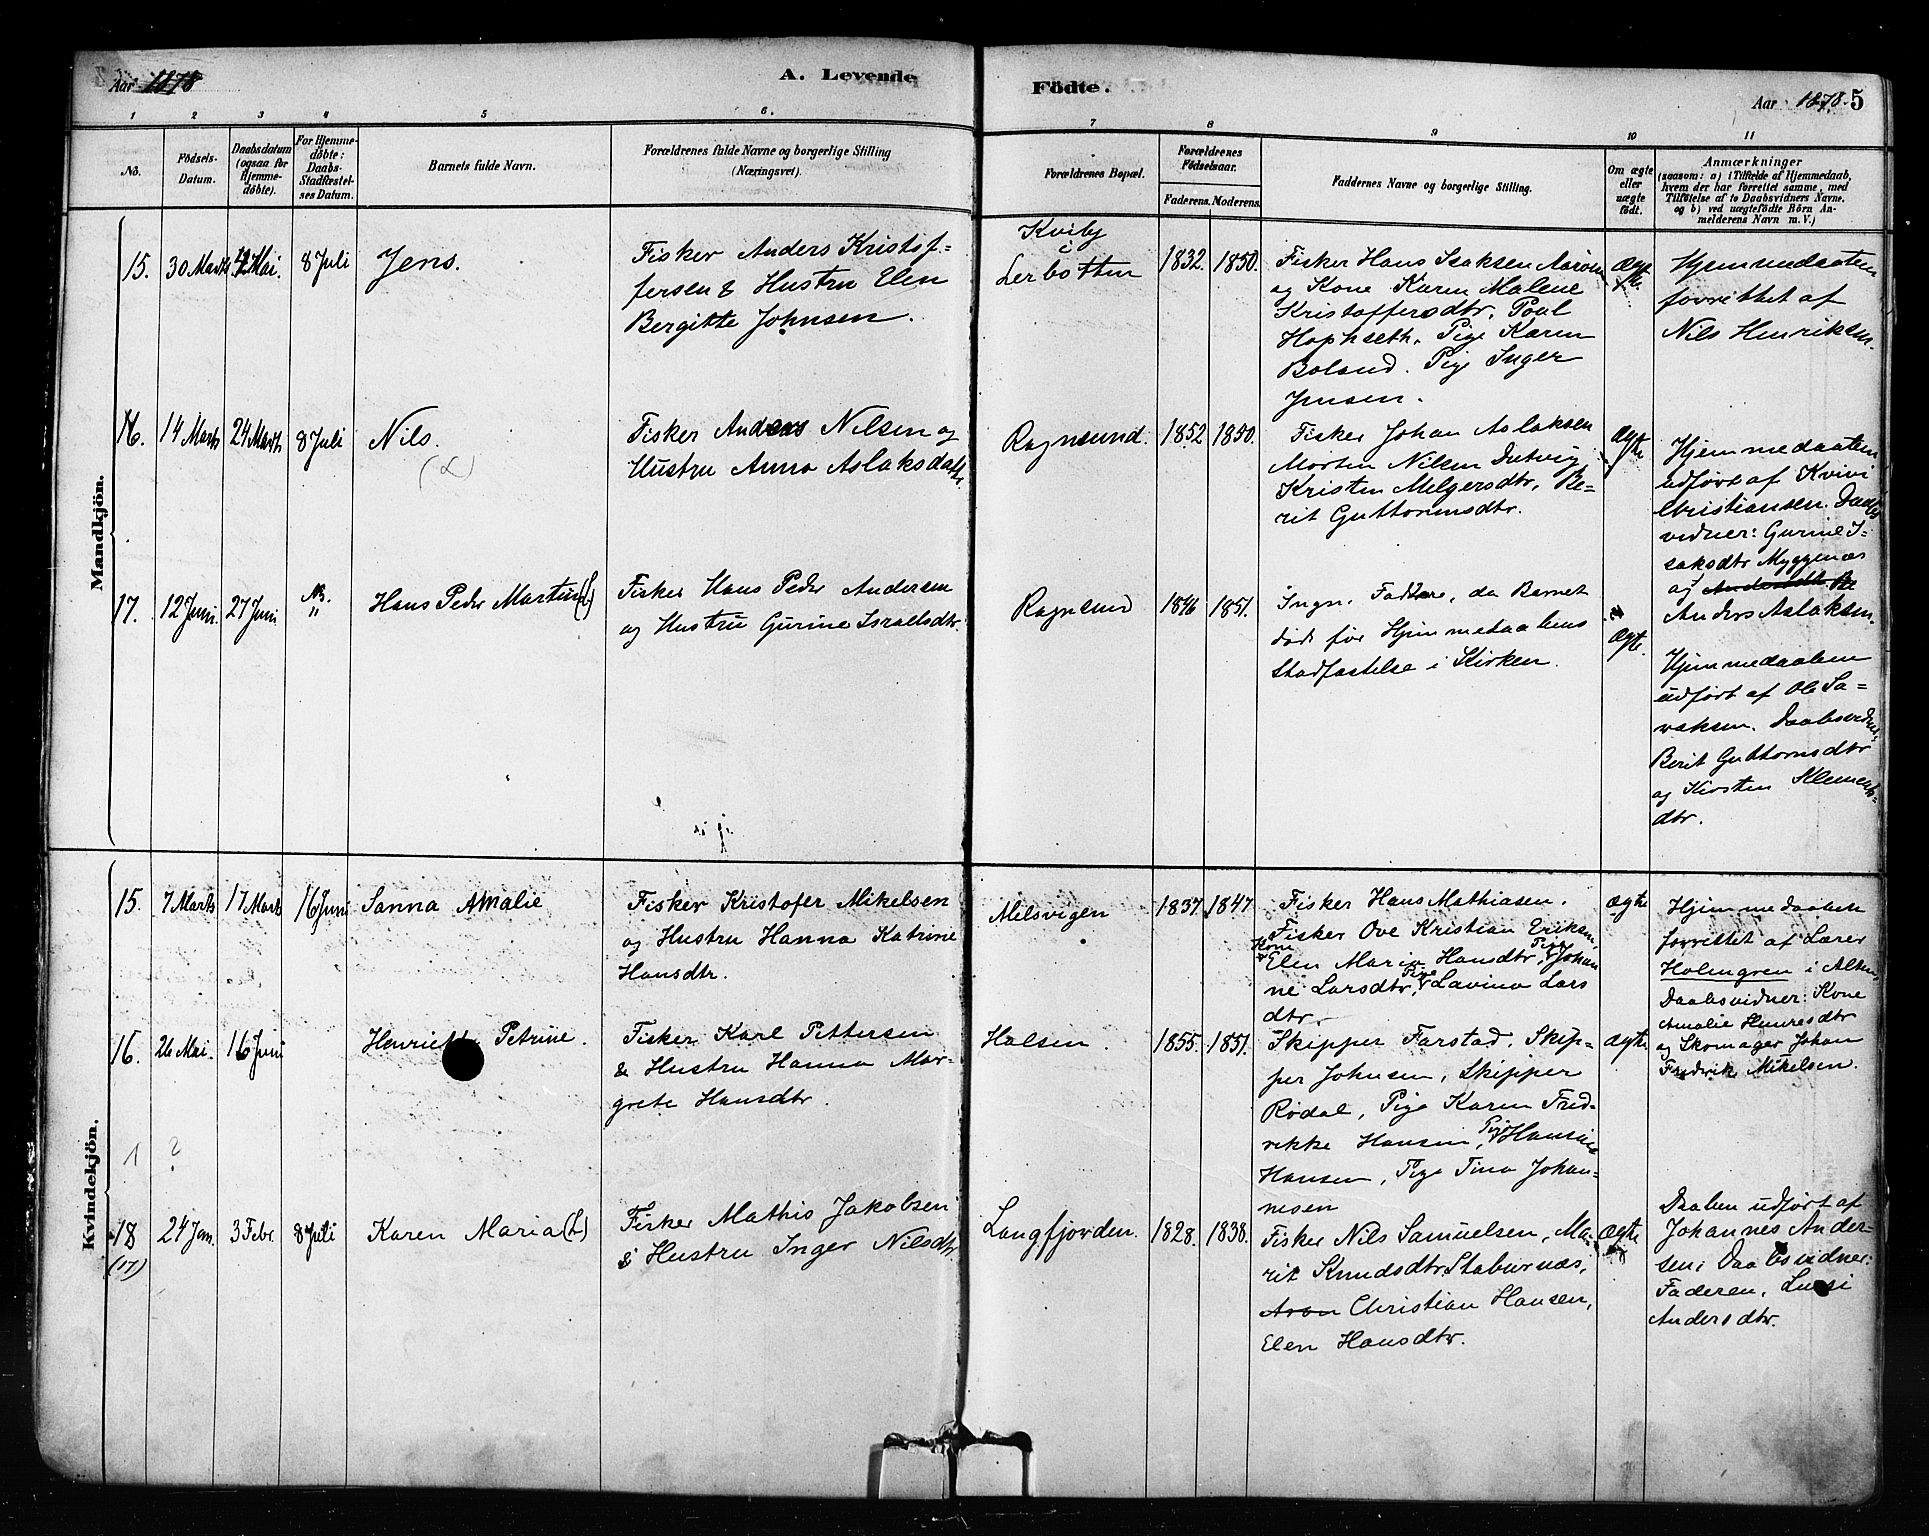 Aar 1878
A. Levende
Födte.
Aar 1878. 5
1 2 3 4 5 6. 7 8 9 10 11
No.
Födsels-
Datum.
Daabsdatum
(ogsaa for
Hjemme-
döbte).
For Hjemme-
döbte:
Daabs-
Stadfæstel-
ses Datum.
Barnets fulde Navn.
Forældrenes fulde Navne og borgerlige Stilling
(Næringsvei).
Forældrenes Bopæl.
Forældrenes
Födselsaar.
Faderens. Moderens.
Faddernes Navne og borgerlige Stilling.
Om ægte
eller
uægte
födt.
Anmærkninger
(saasom: a) i Tilfælde af Hjemmedaab,
hvem der har forrettet samme, med
Tilföielse af to Daabsvidners Navne,
og b) ved uægtefödte Börn An-
melderens Navn m. V.)
Mandkjön.
15. 30 Marts Mai. 8 Juli Jens.
Fisker Anders Kristof-
fersen & Hustru Elen
Bergitte Johnsen.
Kviby
i
Lerbotten
1832. 1850.
Fisker Hans Isaksen
og Kone Karen Malene
Kristoffersdtr, Poul
Hophseth, Pige Karen
Boland. Pige Inger
Jensen.
Ægte
Hjemmedaaben
forrettet af
Nils Henriksen.
16. 14 Marts 24 Marts 8 Juli Nils.
(L)
Fisker Anders Nilsen og
Hustru Anna Aslaksdatt.
Ragnsund. 1852 1850.
Fisker Johan Aslaksen
Morten Nilsen
Kristen Melgersdtr, Be-
rit Guttormsdtr.
Ægte
Hjemmedaaben
udført af Kvivi
Christiansen. Daabs
vidner: Gurine I-
saksdtr Myggenæs
og
Anders Aslaksen.
17. 12 Juni 27 Juni NB.
"
Hans Peder Martin (L)
Fisker Hans Peder Andersen
og Hustru Gurine Israelsdtr.
Ragnsund 1846 1851.
Ingn. Faddere, da Barnet
døde før Hjemmedaabens
Stadfæstelse i Kirken.
Ægte.
Hjemmedaaben
udført af Ole Sa-
vaksen. Daabsvidner:
Berit Guttormsdtr
og Kirsten Klements-
dtr.
Kvindekjön.
15. 7 Marts 17 Marts 16 Juni Sanna Amalie
Fisker Kristofer Mikelsen
og Hustru Hanna Katrine
Hansdtr.
Melsvigen 1837. 1847.
Fisker Hans Mathiasen.
Fisker Ove Kristian Eriksen,
Kone Pige
Elen Maria Hansdtr, Johan
Pige
ne Larsdtr, Lavina Lars
dtr.
Ægte
Hjemmedaaben
forrettet af Lærer
Holmgren i Alten,
Daabsvidner: Kone
Amalie
og Skomager Johan
Fredrik Mikelsen.
16. 26 Mai. 16 Juni Henriette Petrine.
Fisker Karl Pettersen
& Hustru Hanna Mar-
grete Hansdtr.
Halsen. 1855. 1851.
Skipper Farstad, Skip-
per Johnsen, Skipper
Rødal, Pige Karen Fred-
rikke Hansen, Pige Hansine
Hansen, Pige Tina Johan-
nesen
Ægte
1 ?
18 24 Jan. 3 Febr. 8 Juli Karen Maria (L)
(17)
Fisker Mathis Jakobsen
& Hustru Inger Nilsdtr
Langfjorden. 1828. 1838.
Fisker Nils Samuelsen, Ma-
rit Knudsdtr Stabursnæs,
Aron Christian Hansen,
Elen Hansdtr.
Ægte
Daaben udført af
Johannes Ander-
sen; Daabsvidner:
Faderen,
Andersdtr.